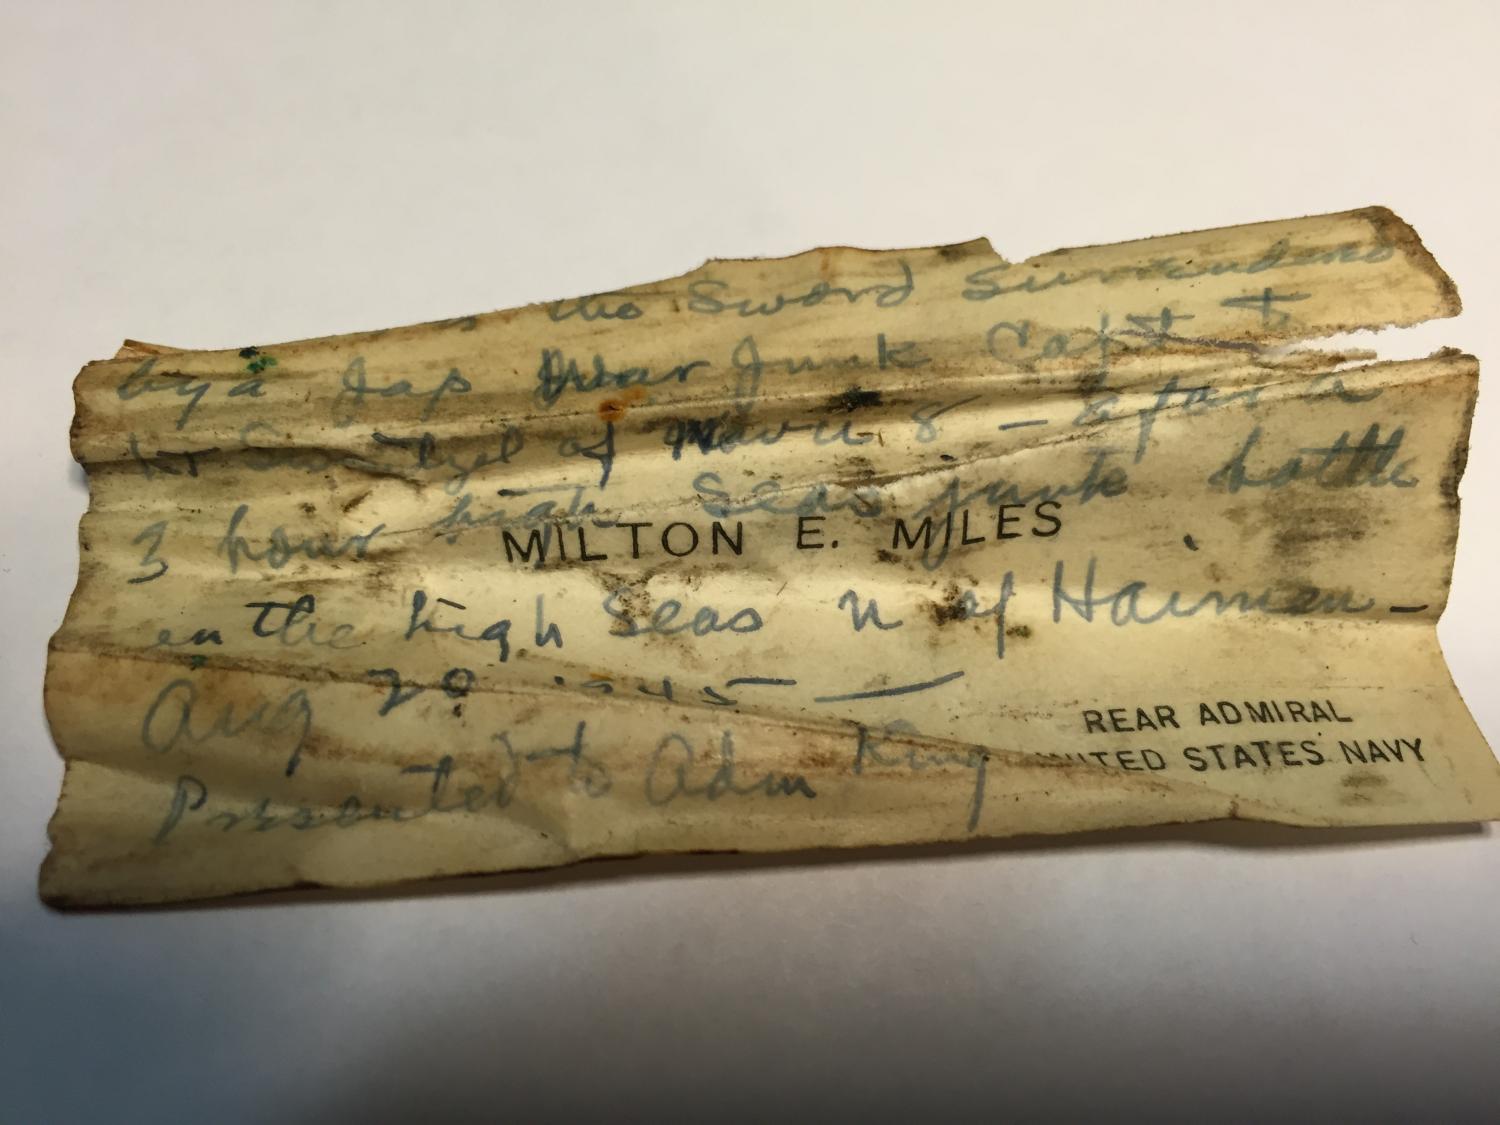 the Sword surrendered
by a Jap War Junk Capt to
Lt Swentzel of Navu 8 - after a
3 hour high seas junk battle
MILTON E. MILES
on the high seas n of Haimen -
Aug 20 1945 —
REAR ADMIRAL
UNITED STATES NAVY
Presented to Adm King